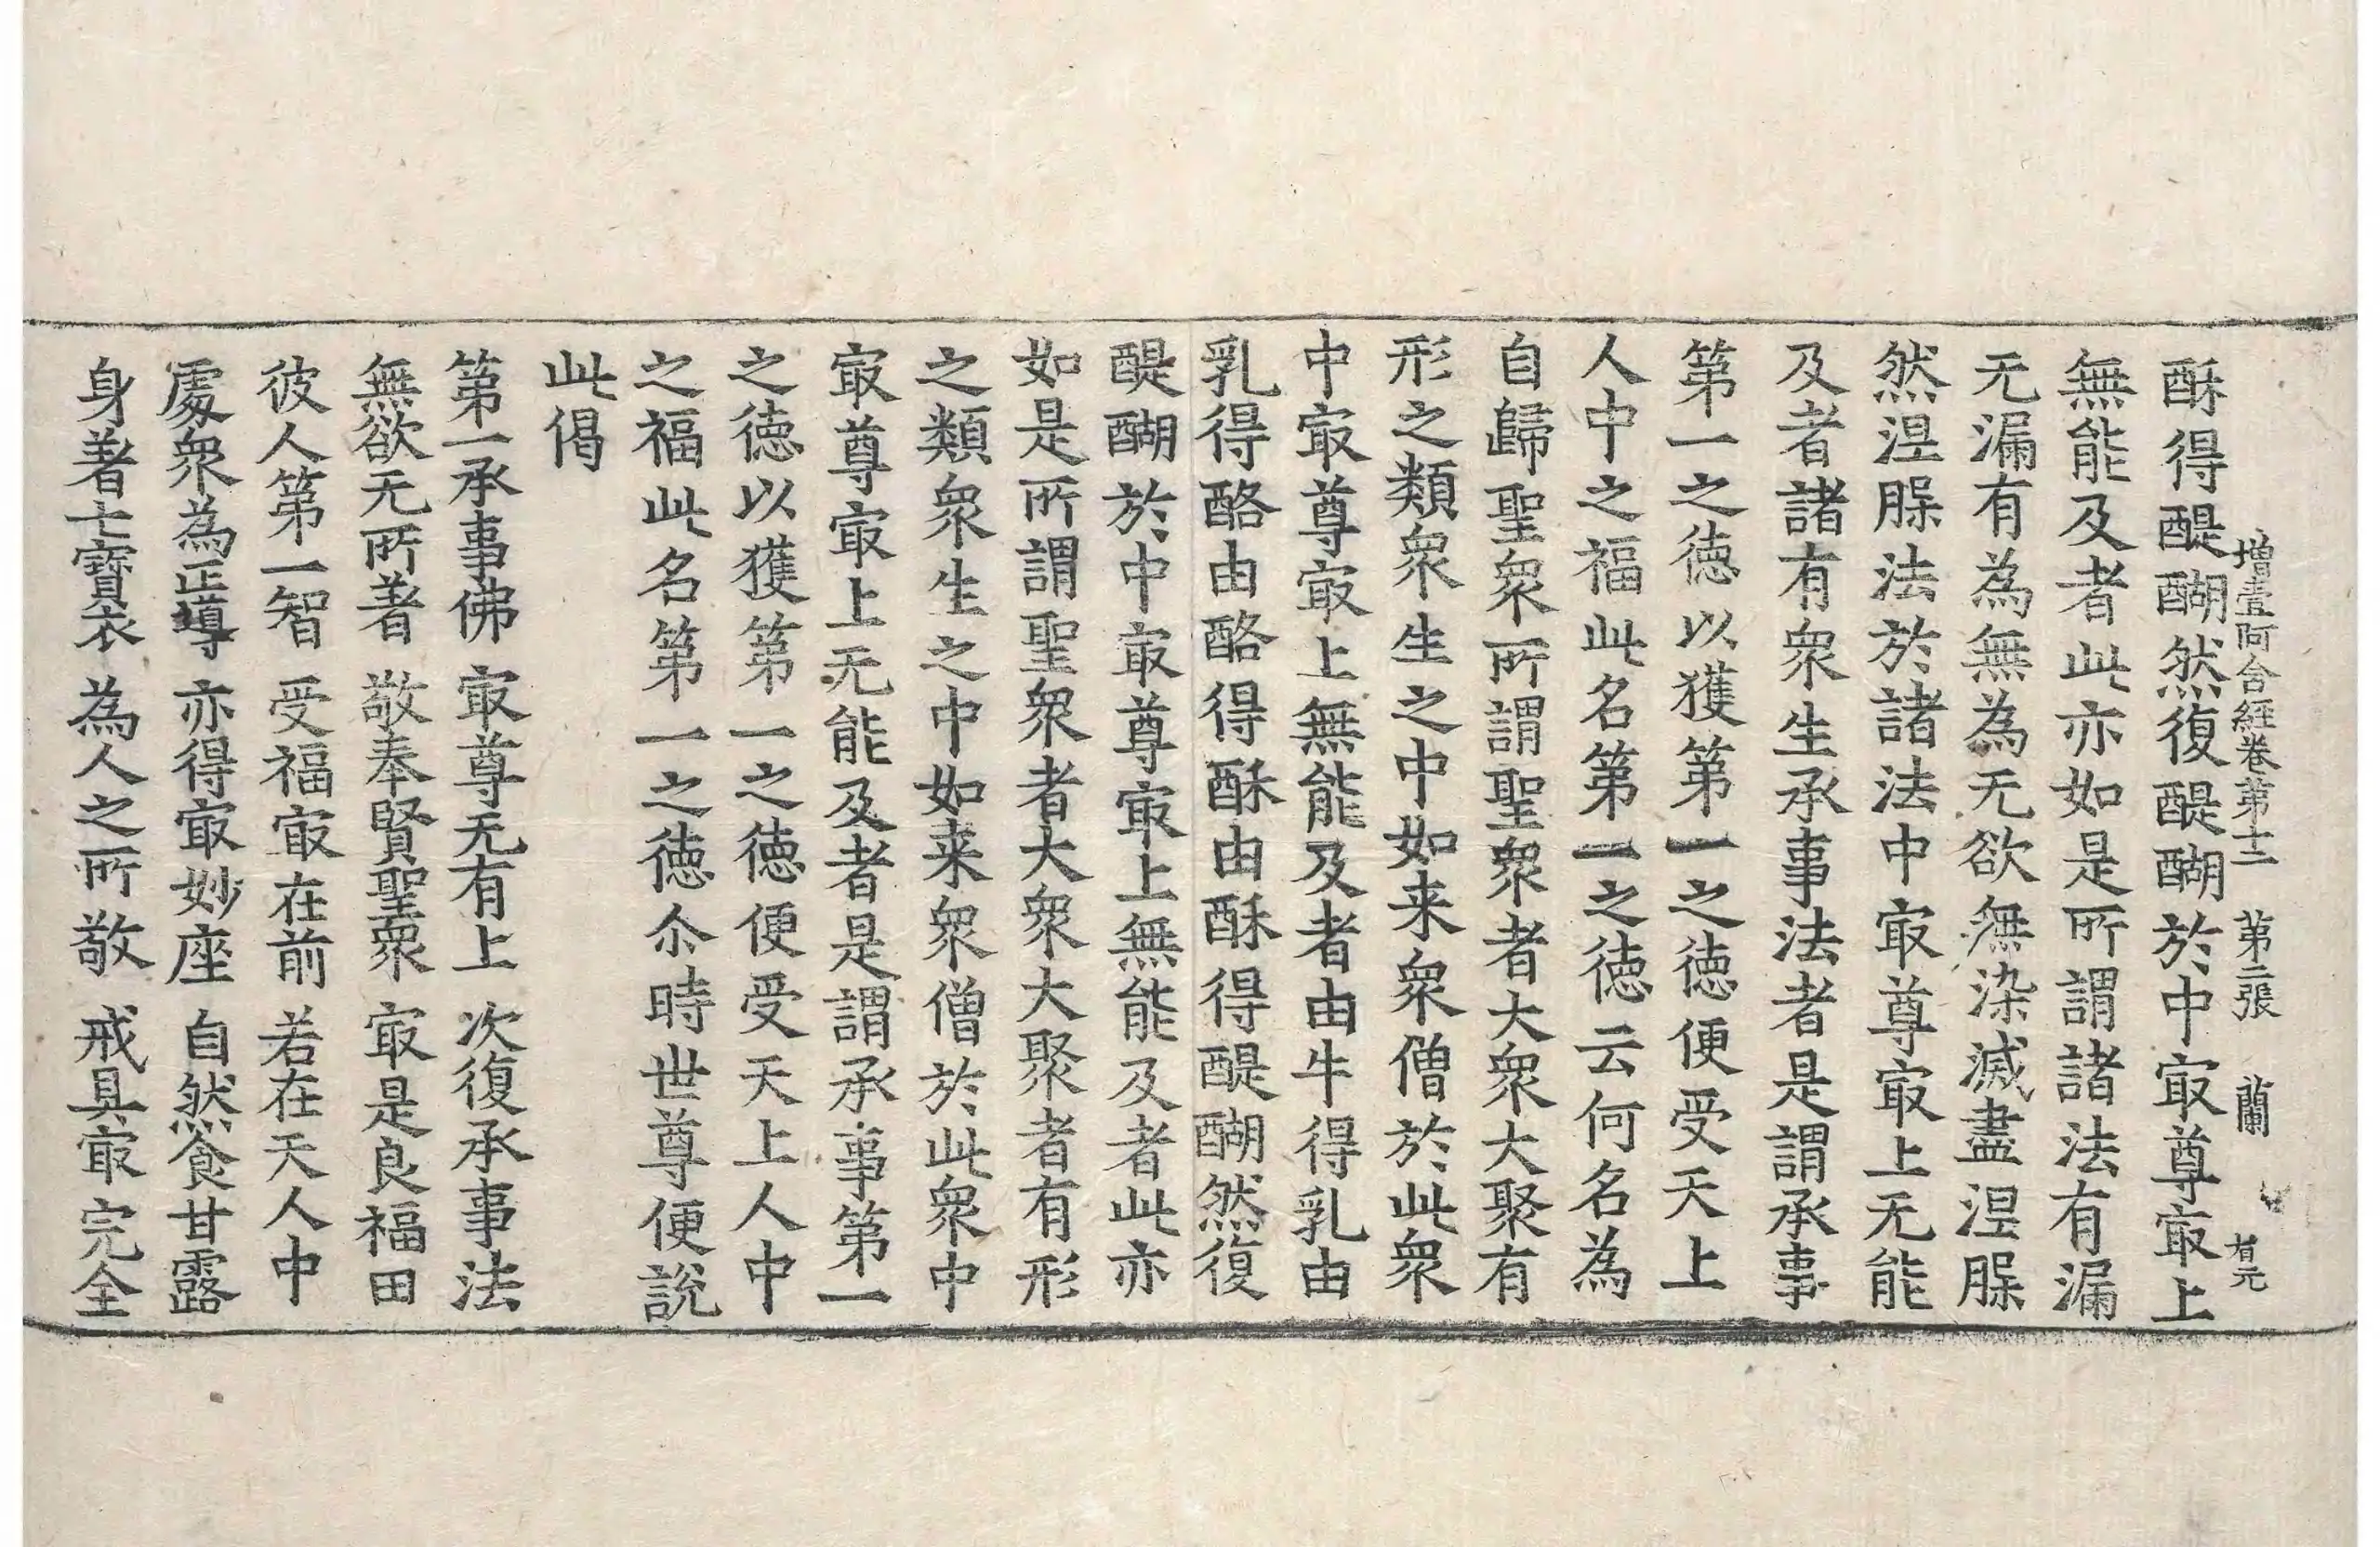 增壹阿含経卷第十二 第二張 蘭 有元
酥得醍醐然復醍醐於中㝡尊㝡上
無能及者此亦如是所謂諸法有漏
无漏有為無為无欲無染滅盡涅脲
然涅脲法於諸法中㝡尊㝡上无能
及者諸有衆生承事法者是謂承事
第一之徳以獲第一之徳便受天上
人中之福此名第一之徳云何名為
自歸聖衆所謂聖衆者大衆大聚有
形之類衆生之中如来衆僧於此衆
中㝡尊㝡上無能及者由牛得乳由
乳得酪由酪得酥由酥得醍醐然復
醍醐於中㝡尊㝡上無能及者此亦
如是所謂聖衆者大衆大聚者有形
之類衆生之中如来衆僧於此衆中
㝡尊㝡上无能及者是謂承事第一
之徳以獲第一之徳便受天上人中
之福此名第一之徳尒時世尊便說
此偈
第一承事佛 㝡尊无有上 次復承事法
無欲无所著 敬奉賢聖衆 㝡是良福田
彼人第一智 受福㝡在前 若在天人中
處衆為正導 亦得㝡妙座 自然食甘露
身著七寶衣 為人之所敬 戒具㝡完全